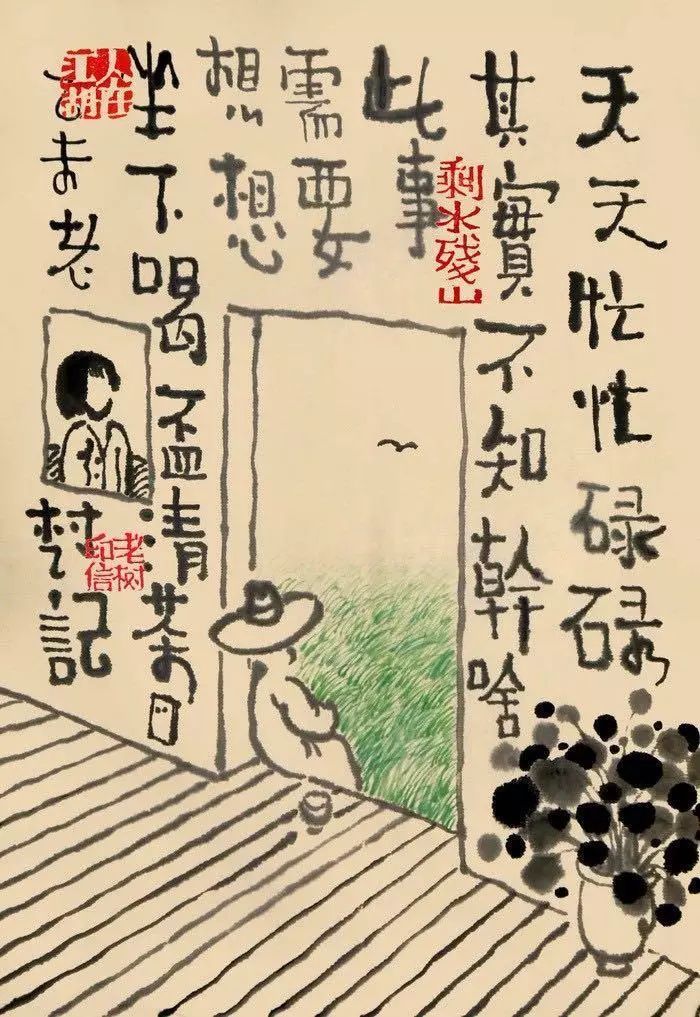 天天忙忙碌碌
其實不知幹啥
此事
剩水殘山
需要
想想
坐下喝盃清茶
人在江湖
未老
記
老树印信